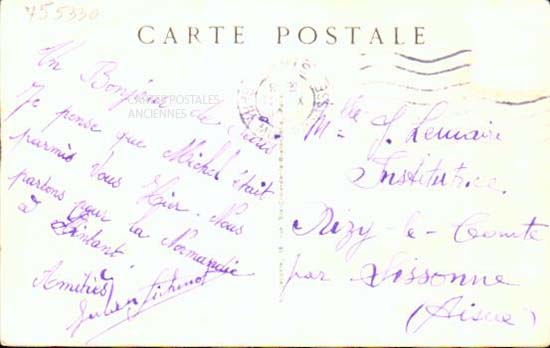 755330
CARTE POSTALE
CARTES POSTALES
ANCIENNES
Un Bonjour de Paris
Je pense que Michel était
parmis vous Hier. Nous
partons pour la Normandie
à l'instant
Amitiés
Mlle J. Lemaire
Institutrice
Nizy-le-Comte
par Sissonne
(Aisne)